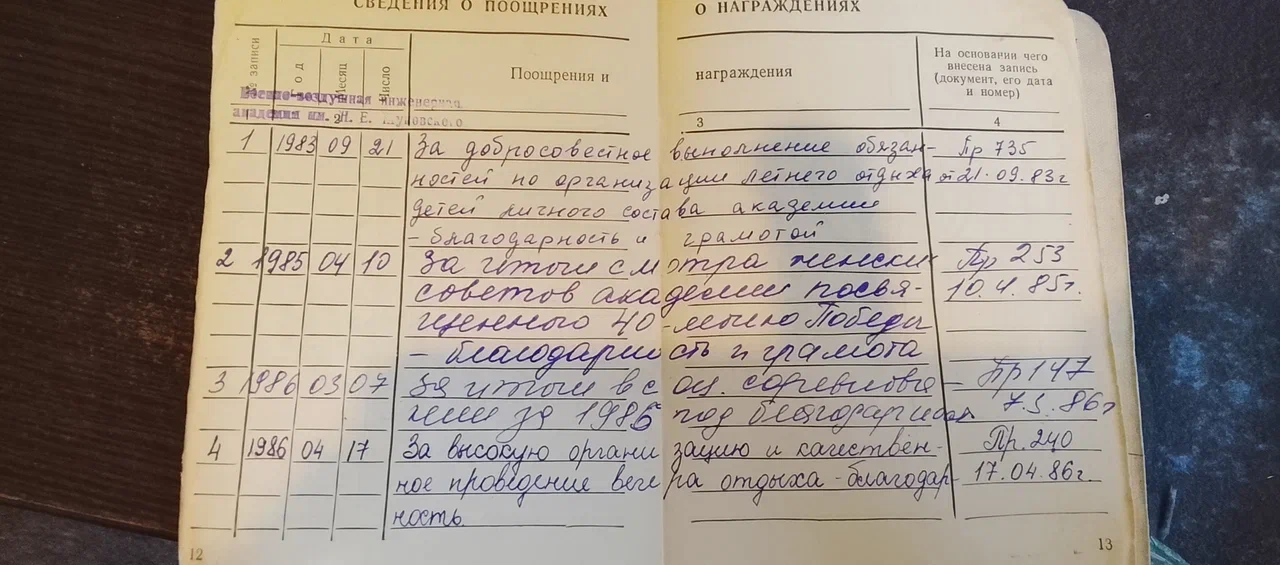 СВЕДЕНИЯ О ПООЩРЕНИЯХ О НАГРАЖДЕНИЯХ
№ записи Дата Поощрения и награждения На основании чего внесена запись (документ, его дата и номер)
Год Месяц Число
Военно-воздушная инженерная
академия им. Н. Е. Жуковского
1 2 3 4
1 1983 09 21 За добросовестное выполнение обязан- Пр 735
ностей по организации летнего отдыха от 21.09.83г
детей личного состава академии
- благодарность и грамотой
2 1985 04 10 За итоги смотра женских Пр 253
советов академии посвя- 10.4.85г.
щенного 40-летию Победы
- благодарность и грамота
3 1986 03 07 За итоги в соц. соревнова- Пр 147
нии за 1985 год благодарность 7.3.86г
4 1986 04 17 За высокую организацию и качествен- Пр. 240
ное проведение вечера отдыха - благодар- 17.04.86г.
ность.
12 13